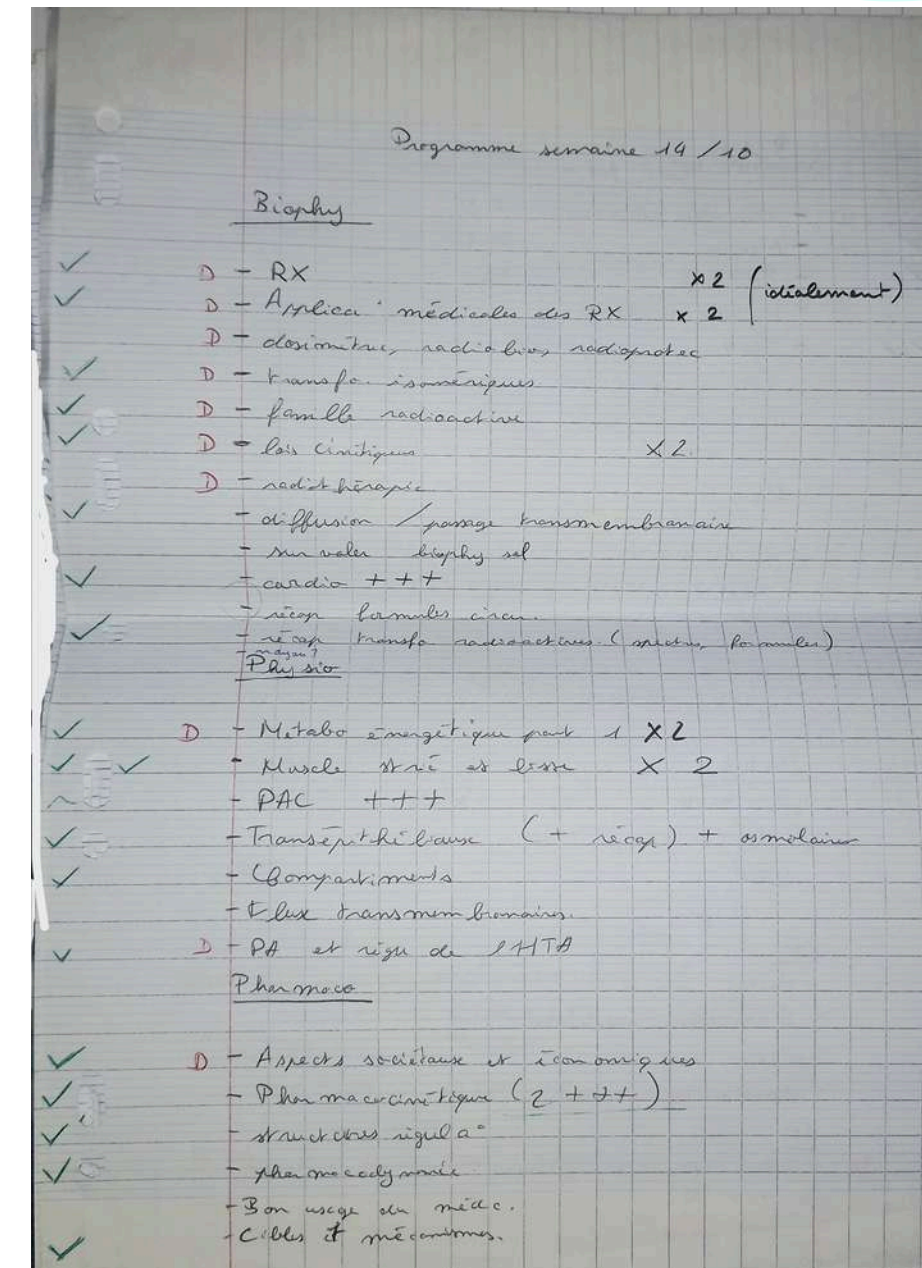 Programme semaine 14/10
Biophy
✓ D - RX x2 (idéalement)
✓ D - Applica° médicales des RX x 2
D - dosimétrie, radiobio, radioprotec
✓ D - transfo. isomériques
✓ D - famille radioactive
✓ D - lois cinétiques x2.
D - radiothérapie
✓ - diffusion / passage transmembranaire
- biophy sol
✓ - cardio +++
- récap formules circu.
✓ - récap transfo radioactives (spectres, formules)
- noyau ?
Physio
✓ D - Métabo énergétique part 1 X2
✓ ✓ - Muscle strié et lisse X 2
~ - PAC +++
✓ - Transépithéliaux (+ récap) + osmolaires
✓ - Compartiments
- Flux transmembranaires.
✓ D - PA et régu de l'HTA
Pharmaco
✓ D - Aspects sociétaux et économiques
✓ - Pharmacocinétique (2 +++)
✓ - structures régula°
✓ - pharmacodynamie
- Bon usage du médc.
✓ - Cibles et mécanismes.